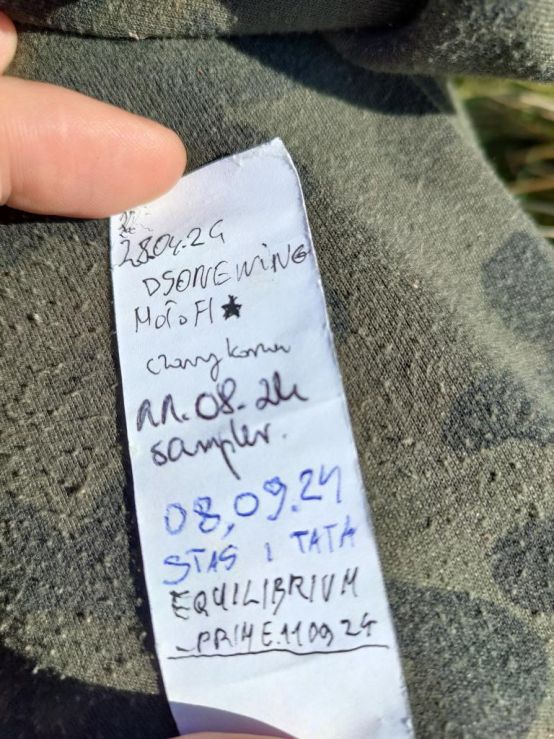 28.04.24
DSONEWING
MOTOFI★
czarny
11.08.24
sampler.
08,09.24
STAS i TATA
EQUILIBRIUM
-PRIME.11 09 24